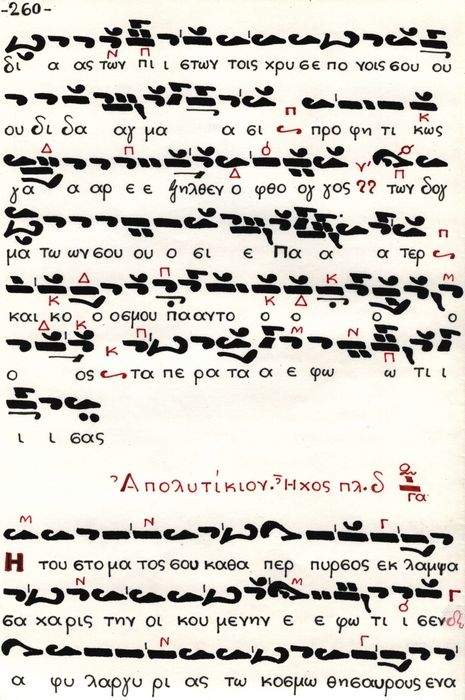 -260-
δι α ας των πι ι στων τοις χρυ σε πο νοις σου ου
ου δι δα αγ μα α σι προ φη τι κως
γα α αρ ε ε ξηλθεν ο φθο ογ γος των δογ
μα τω ων σου ου ο σι ε Πα α α τερ
και κο ο οσμου πα αντο ο ο ο ο
ο ος τα πε ρα τα α ε φω ω τι ι
ι ι σας
Ἀπολυτίκιον. Ἦχος πλ. δ γα
Η του στο μα τος σου καθα περ πυρσος εκ λαμψα
σα χα ρις την οι κου μενην ε ε φω τι ι σεν
α φυ λαργυ ρι ας τω κοσμω θησαυρους ενα